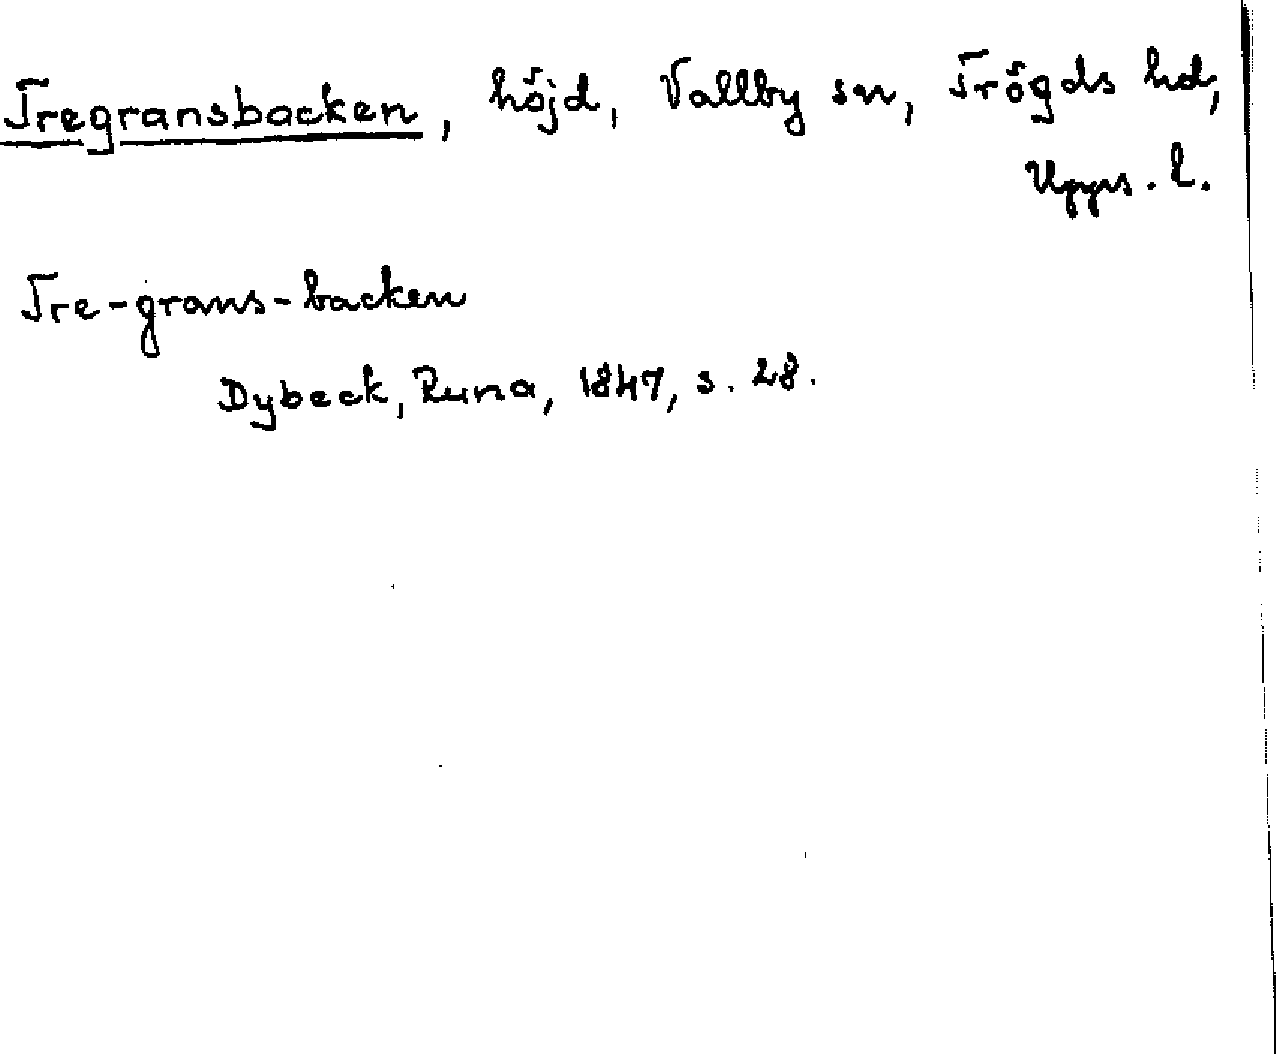 Tregransbacken, höjd, Vallby sn, Trögds hd,
Upps. l.
Tre-grans-backen
Dybeck, Runa, 1847, s. 28.